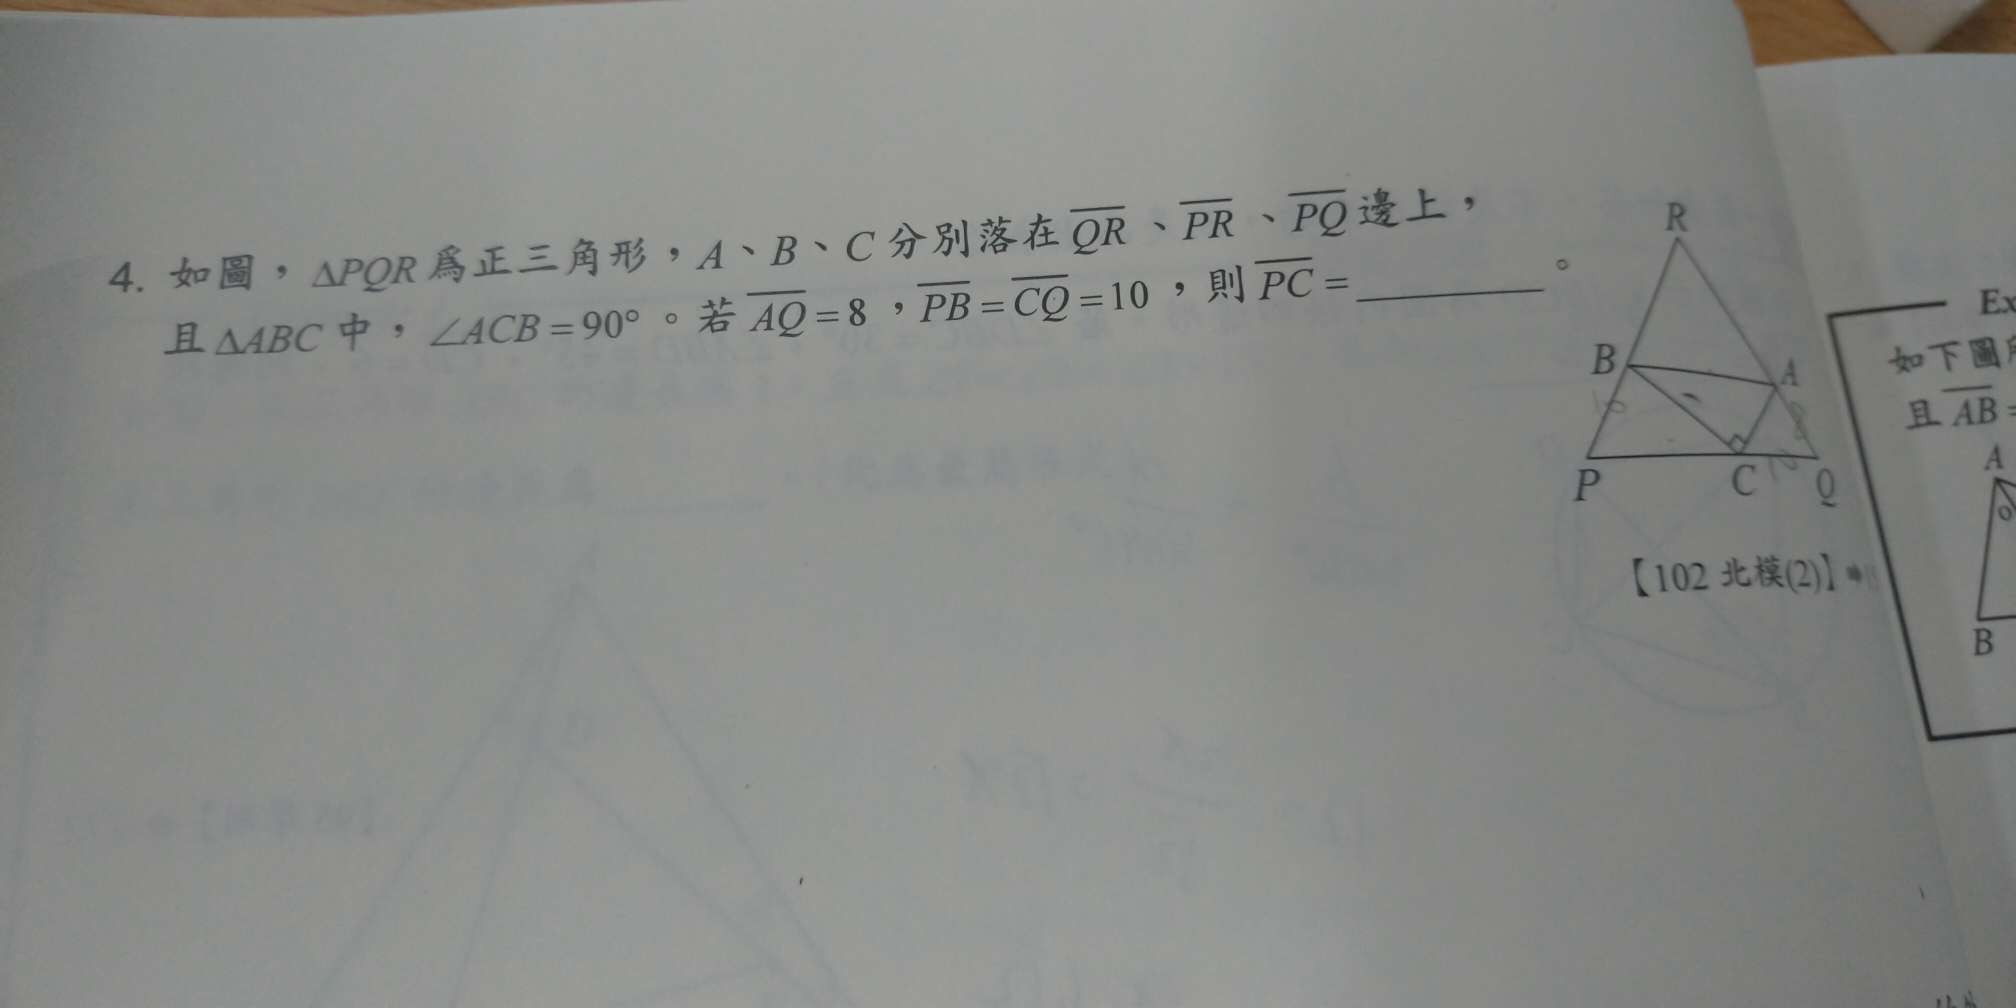 4. 如圖，ΔPQR 為正三角形，A、B、C 分別落在 QR、PR、PQ 邊上，
且 ΔABC 中，∠ACB=90°。若 AQ=8，PB=CQ=10，則 PC=________。
R
B
A
10
8
P
C
10
Q
【102 北模(2)】➡
Ex
如下圖
且 AB=
A
B